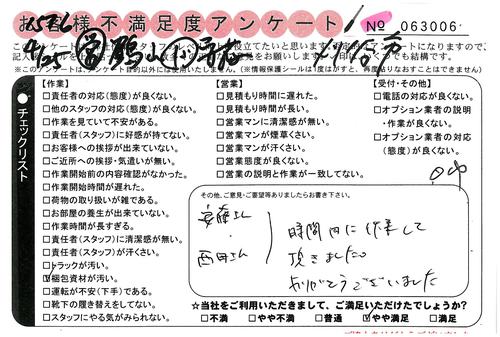 お客様不満足度アンケート
No 063006
【作業】
□責任者の対応(態度)が良くない。
□他のスタッフの対応(態度)が良くない。
□作業を見ていて不安がある。
□責任者(スタッフ)に好感が持てない。
□お客様への挨拶が出来ていない。
□ご近所への挨拶・気遣いが無い。
□作業開始前の内容確認がなかった。
□作業開始時間が遅れた。
□荷物の取り扱いが雑である。
□お部屋の養生が出来ていない。
□作業時間が長すぎる。
□責任者(スタッフ)に清潔感が無い。
□責任者(スタッフ)が汗くさい。
□トラックが汚い。
☑梱包資材が汚い。
□運転が不安(下手)である。
□靴下の履き替えをしてない。
□スタッフにやる気がみられない。
【営業】
□見積もり時間に遅れた。
□見積もり時間が長い。
□営業マンに清潔感が無い。
□営業マンが煙草くさい。
□営業マンが汗くさい。
□営業態度が良くない。
□営業の説明と作業が一致してない。
【受付・その他】
□電話の対応が良くない。
□オプション業者の説明
・作業が良くない。
□オプション業者の対応
(態度)が良くない。
チェックリスト
その他、ご意見・ご要望等ありましたらお書き下さい。
安藤さん
西田さん
時間内に作業して
頂きました。
ありがとうございました
☆当社をご利用いただきまして、ご満足いただけたでしょうか?
□不満 □やや不満 □普通 ☑やや満足 □満足